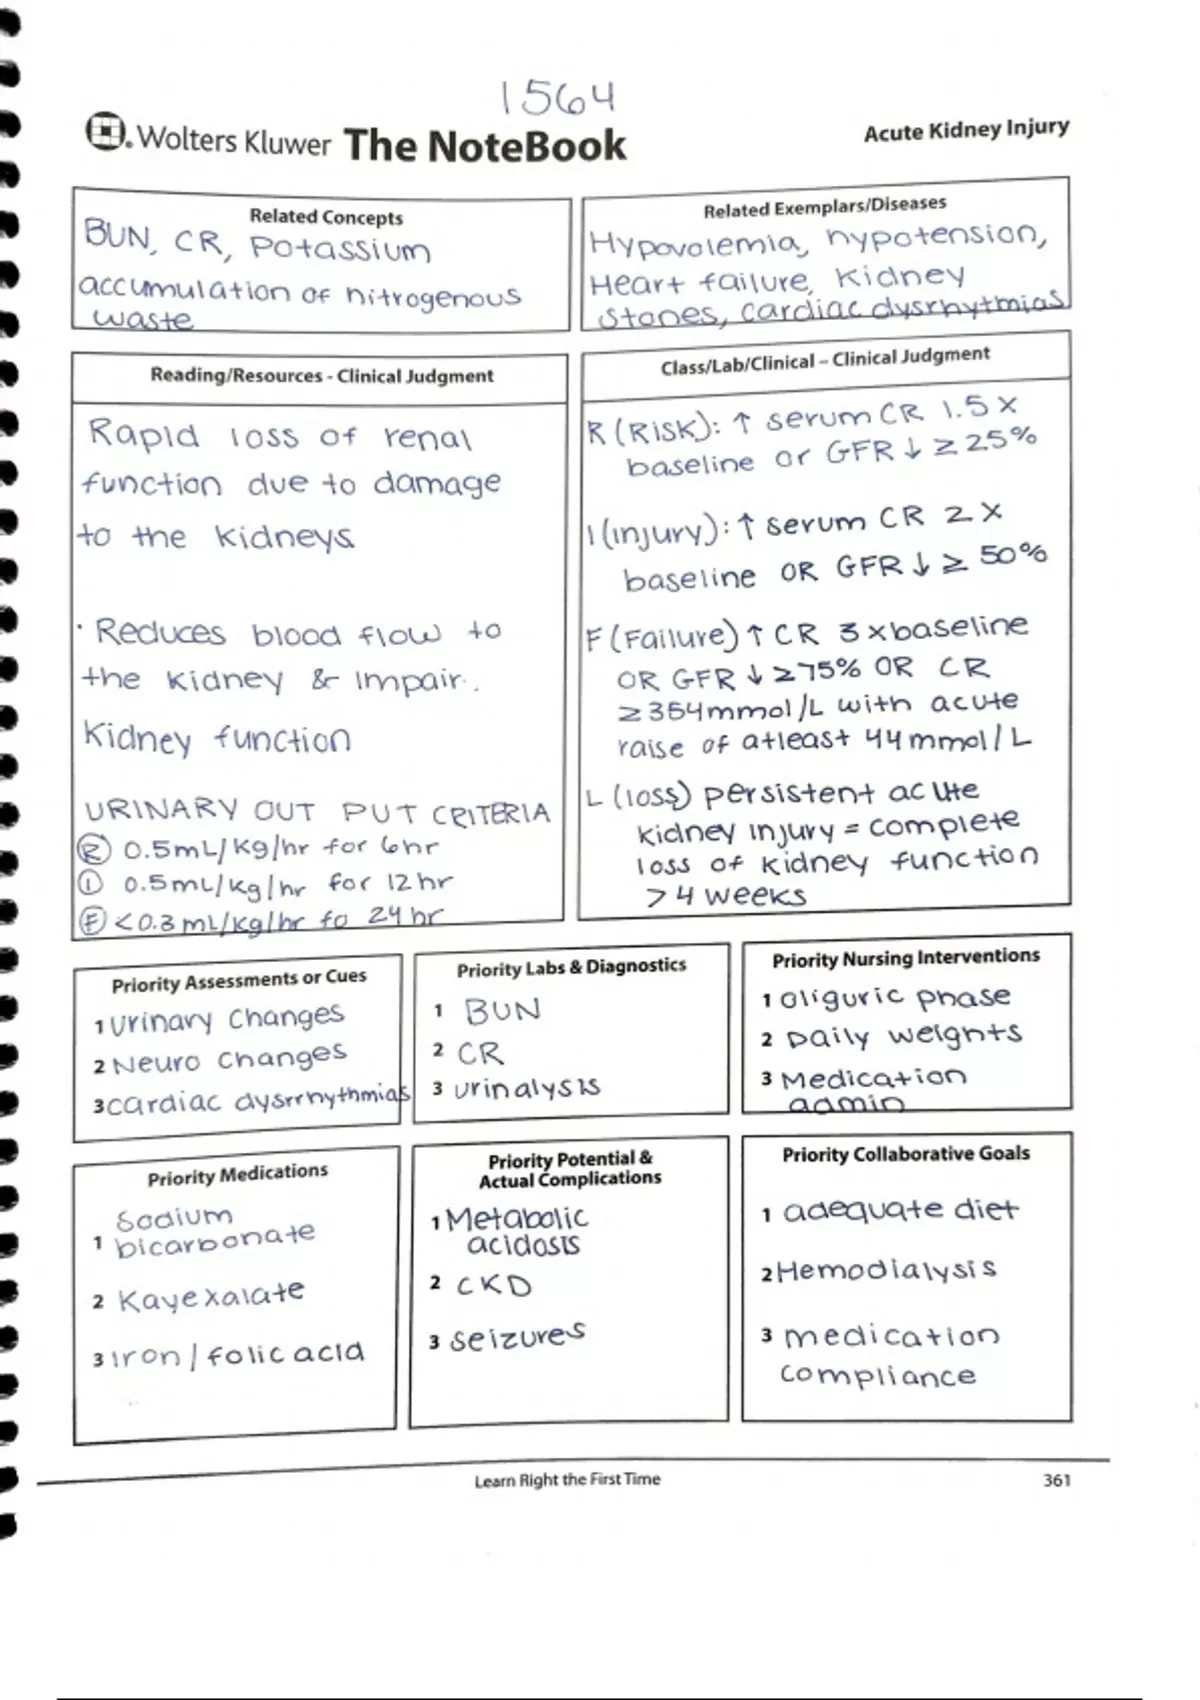 1564
Wolters Kluwer The NoteBook
Acute Kidney Injury
Related Concepts
BUN, CR, Potassium
accumulation of nitrogenous
waste
Related Exemplars/Diseases
Hypovolemia, hypotension,
Heart failure, Kidney
stones, cardiac dysrhytmias
Reading/Resources - Clinical Judgment
Rapid loss of renal
function due to damage
to the kidneys
· Reduces blood flow to
the kidney & impair.
Kidney function
URINARY OUT PUT CRITERIA
R 0.5mL/kg/hr for 6hr
I 0.5mL/kg/hr for 12hr
F <0.3mL/kg/hr fo 24hr
Class/Lab/Clinical – Clinical Judgment
R (Risk): ↑ serum CR 1.5x
baseline or GFR ↓ ≥ 25%
I (injury): ↑ serum CR 2x
baseline OR GFR ↓ ≥ 50%
F (Failure) ↑ CR 3xbaseline
OR GFR ↓ ≥75% OR CR
≥354mmol/L with acute
raise of atleast 44mmol/L
L (loss) persistent acute
kidney injury = complete
loss of kidney function
>4 weeks
Priority Assessments or Cues
1 urinary changes
2 Neuro changes
3 cardiac dysrrhythmias
Priority Labs & Diagnostics
1 BUN
2 CR
3 urinalysis
Priority Nursing Interventions
1 oliguric phase
2 Daily weights
3 Medication
admin
Priority Medications
1 Sodium
bicarbonate
2 Kayexalate
3 Iron/folic acid
Priority Potential &
Actual Complications
1 Metabolic
acidosis
2 CKD
3 seizures
Priority Collaborative Goals
1 adequate diet
2 Hemodialysis
3 medication
compliance
Learn Right the First Time
361